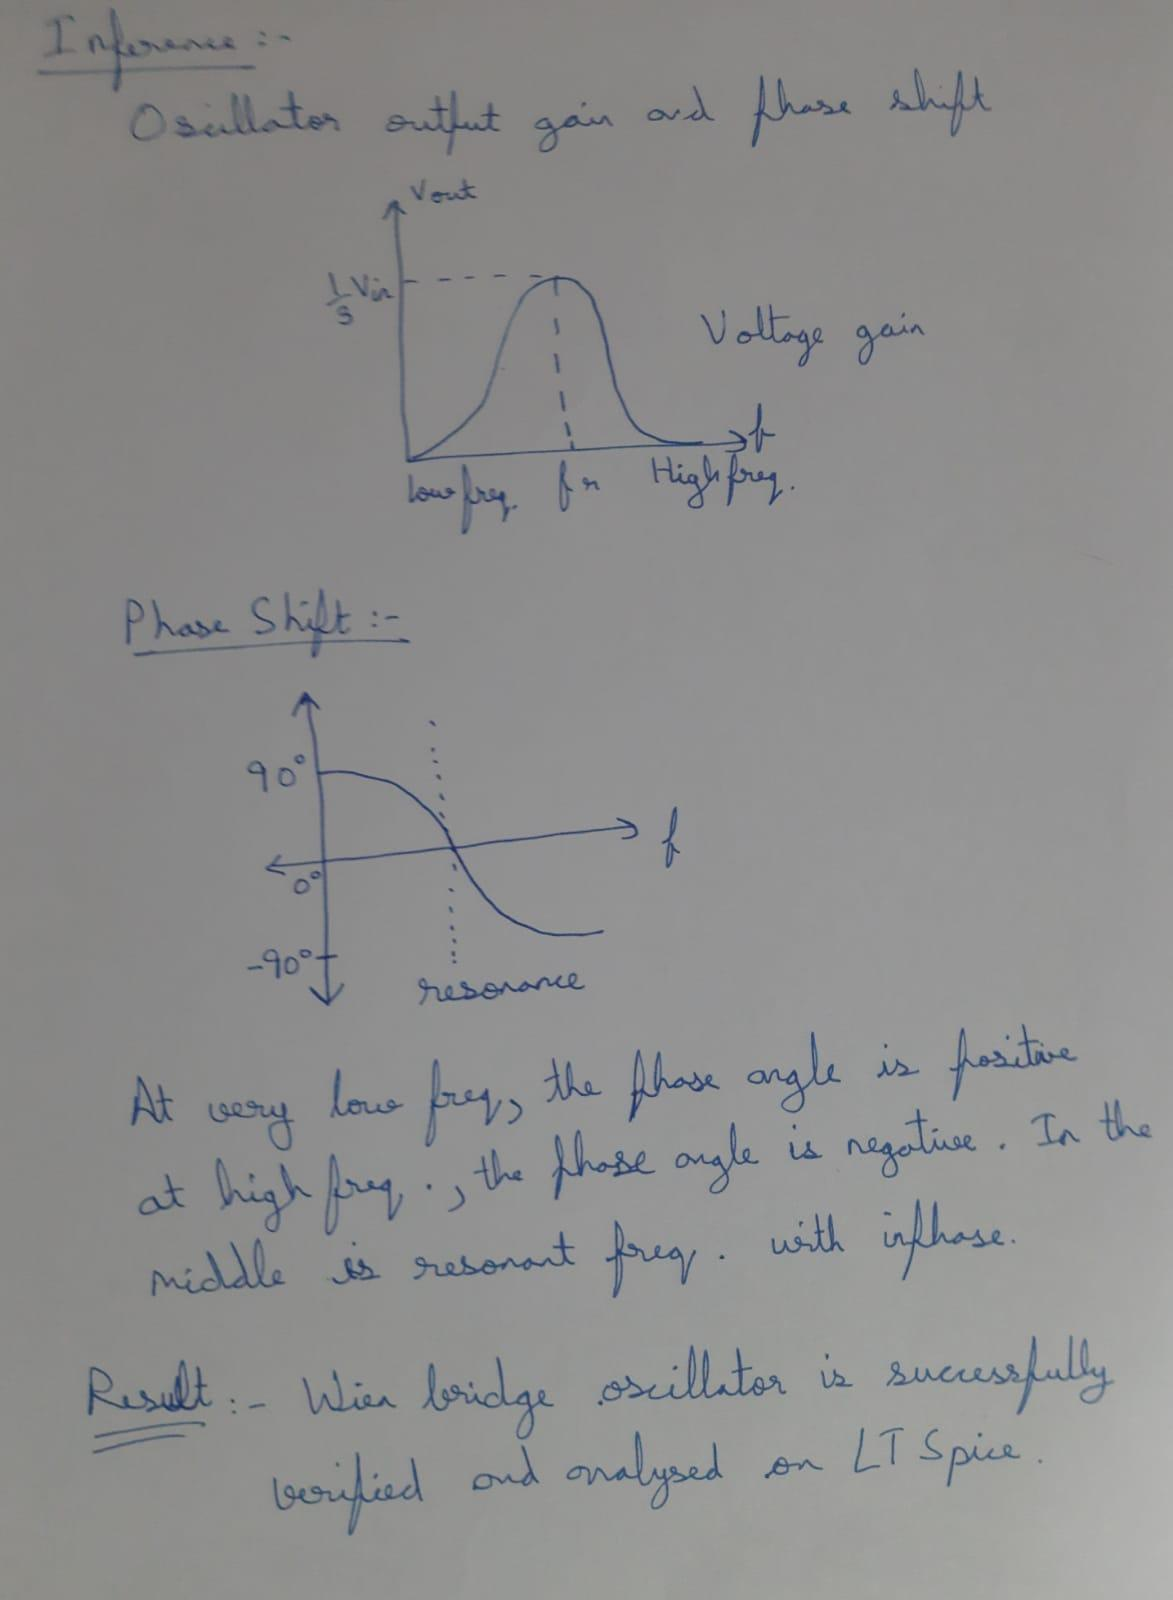 Inference :-
Oscillator output gain and phase shift
Vout
1/3 Vin
Voltage gain
f
low freq. fr High freq.
Phase Shift :-
90°
f
0°
-90°
resonance
At very low freq, the phase angle is positive
at high freq., the phase angle is negative. In the
middle is resonant freq. with inphase.
Result :- Wien bridge oscillator is successfully
verified and analysed on LT Spice.